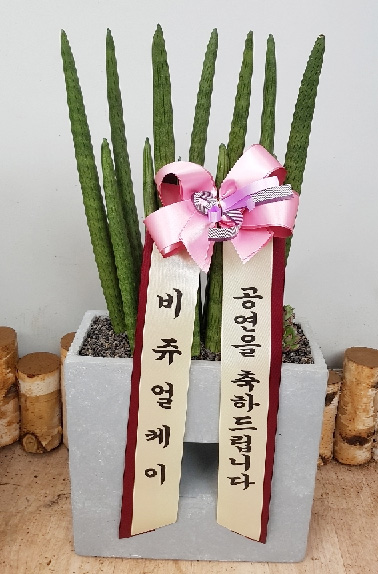 비쥬얼케이
공연을 축하드립니다